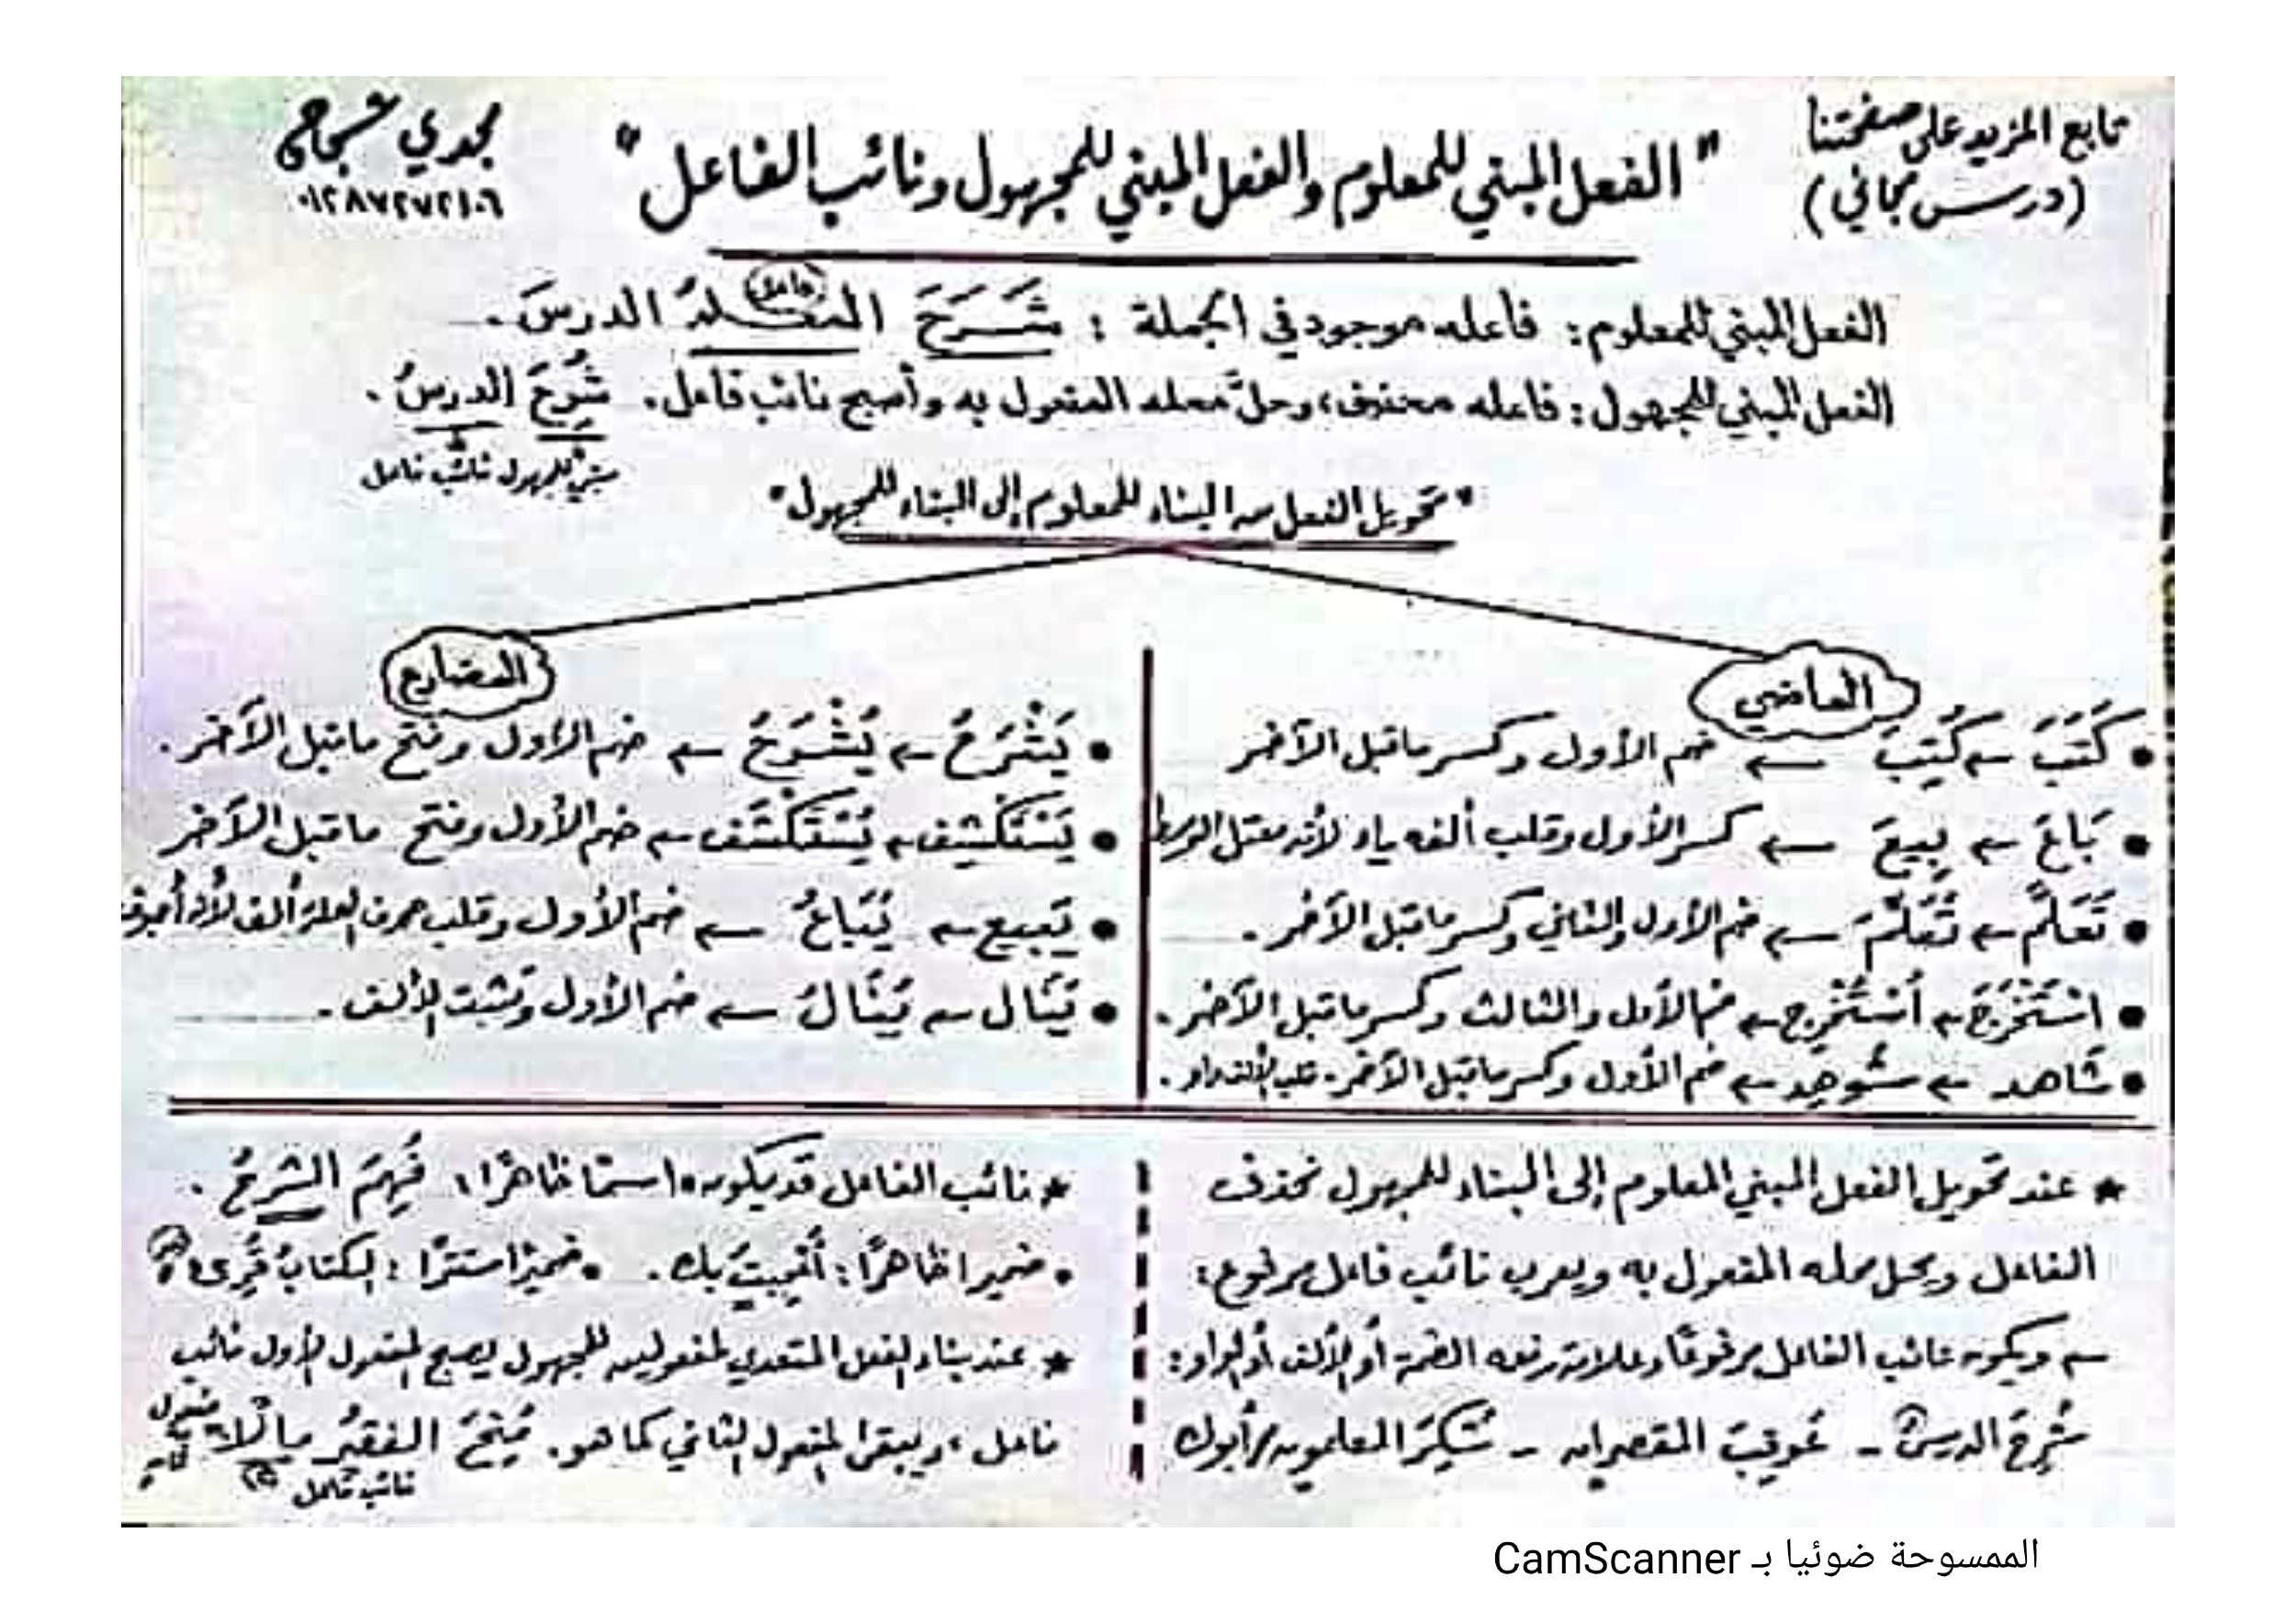 تابع المزيد على صفحتنا
(درس مجاني)
"الفعل المبني للمعلوم والفعل المبني للمجهول ونائب الفاعل"
مجدي شجاع
الفعل المبني للمعلوم: فاعله موجود في الجملة : شَرَحَ الدرسَ.
فاعل
الفعل المبني للمجهول: فاعله محذوف، وحلَّ محله المفعول به وأصبح نائب فاعل. شُرِحَ الدرسُ.
مبني للمجهول نائب فاعل
"تحويل الفعل من البناء للمعلوم إلى البناء للمجهول"
الماضي
• كَتَبَ ← كُتِبَ ← ضم الأول وكسر ماقبل الآخر
• بَاعَ ← بِيعَ ← كسر الأول وقلب ألفه ياء لأنه معتل الوسط
• تَعَلَّمَ ← تُعُلِّمَ ← ضم الأول والثاني وكسر ماقبل الآخر.
• اسْتَخْرَجَ ← اُسْتُخْرِج ← ضم الأول والثالث وكسر ماقبل الآخر.
• شاهد ← شُوهِد ← ضم الأول وكسر ماقبل الآخر - قلب الألف واو.
المضارع
• يَشْرَحُ ← يُشْرَحُ ← ضم الأول وفتح ماقبل الآخر.
• يَسْتَكْشِف ← يُسْتَكْشَف ← ضم الأول وفتح ماقبل الآخر
• يَبيع ← يُبَاعُ ← ضم الأول وقلب حرف العلة ألف لأنه أجوف
• يَنَال ← يُنَالُ ← ضم الأول وتثبت الألف.
★ عند تحويل الفعل المبني للمعلوم إلى البناء للمجهول نحذف
الفاعل ويحل محله المفعول به ويعرب نائب فاعل مرفوع:
← ويكون نائب الفاعل مرفوعًا وعلامة رفعه الضمة أو الألف أو الواو:
شُرِحَ الدرسُ - عُوقِبَ المقصران - شُكِرَ المعلمون / أبوك
★ نائب الفاعل قد يكون • اسمًا ظاهرًا: فُهِمَ الشرحُ.
• ضميرا ظاهرًا: أُعْجِبتُ بك. • ضميرًا مستترًا: الكتابُ قُرِئ
★ عند بناء الفعل المتعدي لمفعولين للمجهول يصبح المفعول الأول نائب
فاعل، ويبقى المفعول الثاني كما هو. مُنِحَ الفقيرُ مالًا
نائب فاعل
مفعول